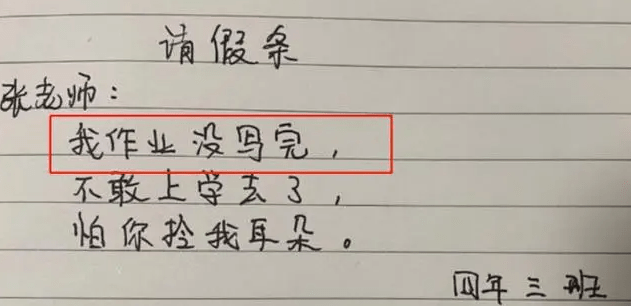 请假条
张老师：
我作业没写完，
不敢上学去了，
怕你拴我耳朵。
四年三班